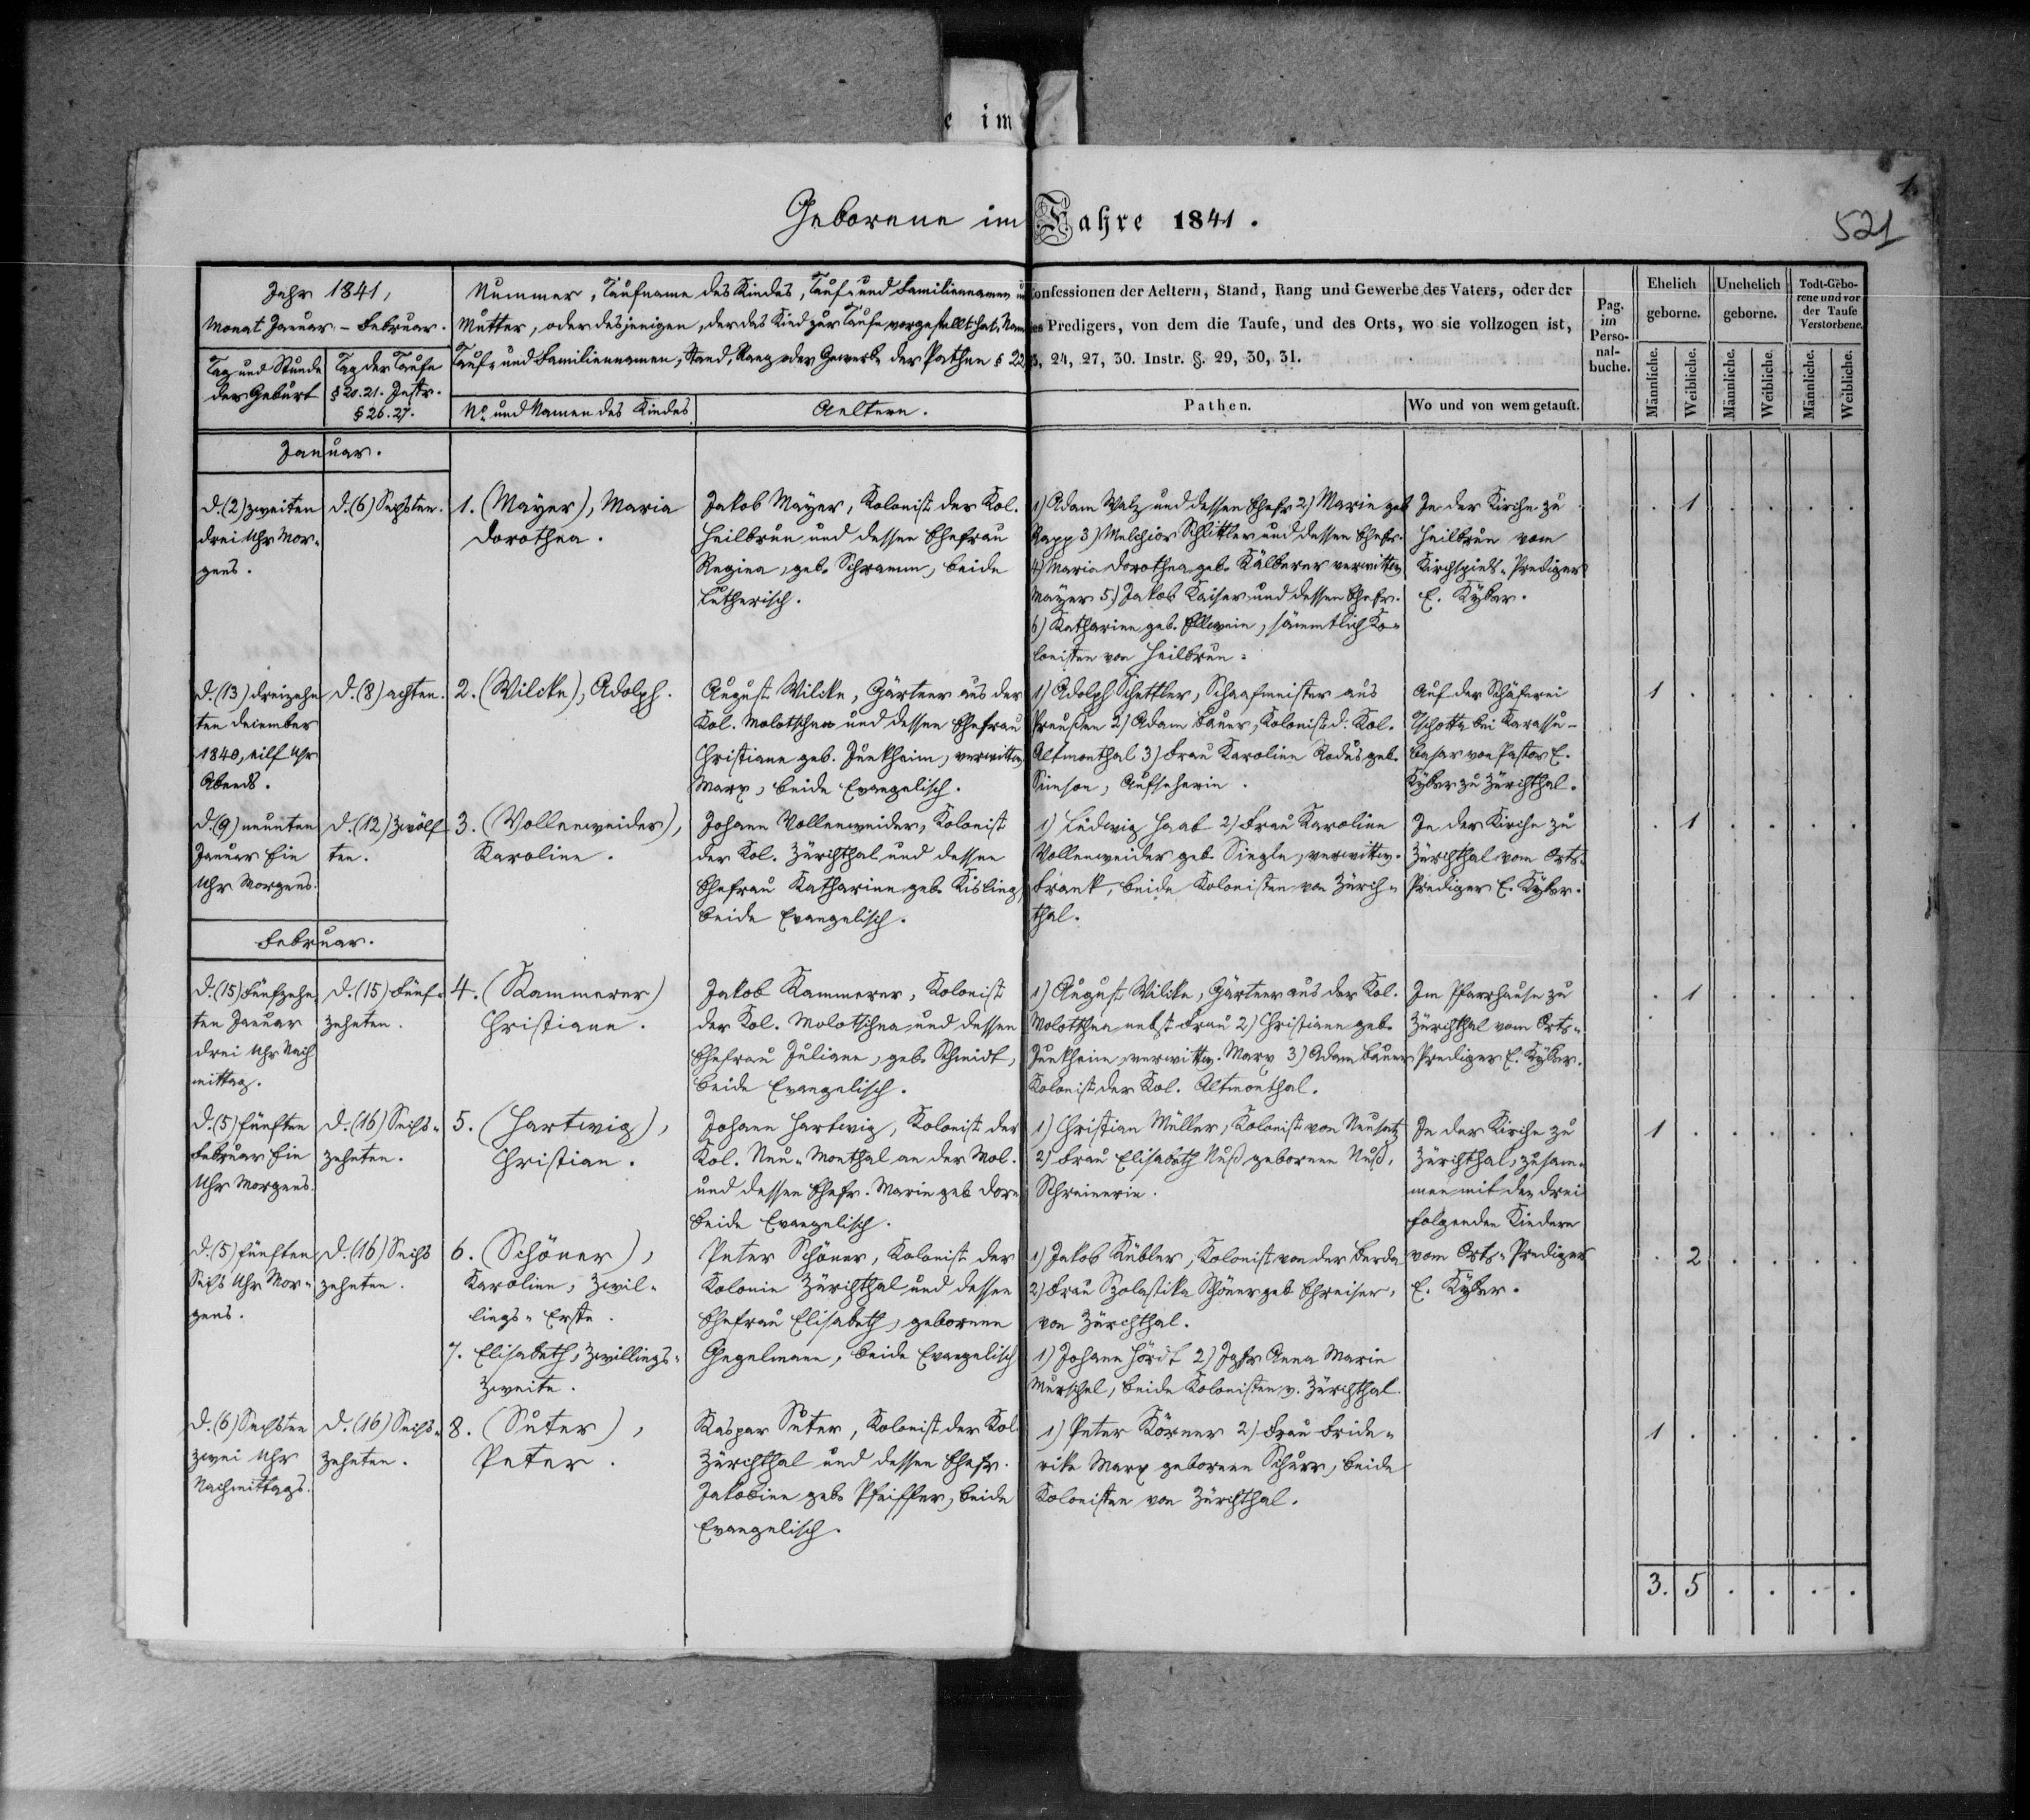 e im
1.
Geborene im Jahre 1841.
521
Jahr 1841,
Monat Januar - Februar.
Tag und Stunde
der Geburt
Tag der Taufe
§ 20. 21. Instr.
§ 26. 27.
Nummer, Taufname des Kindes, Tauf- und Familiennamen
Mutter, oder desjenigen, der das Kind zur Taufe vorgestellt hat, Name
Tauf- und Familiennamen, Stand, Rang oder Gewerbe der Pathen § 22
No und Namen des Kindes
Aeltern.
Confessionen der Aeltern, Stand, Rang und Gewerbe des Vaters, oder der
des Predigers, von dem die Taufe, und des Orts, wo sie vollzogen ist,
23, 24, 27, 30. Instr. §. 29, 30, 31.
Pathen.
Wo und von wem getauft.
Pag.
im
Perso-
nal-
buche.
Ehelich
geborne.
Unehelich
geborne.
Todt-Gebo-
rene und vor
der Taufe
Verstorbene.
Männliche.
Weibliche.
Männliche.
Weibliche.
Männliche.
Weibliche.
Januar.
d. (2) zweiten
drei Uhr Mor-
gens.
d. (6) Sechsten.
1. (Mayer), Maria
Dorothea.
Jakob Mayer, Kolonist der Kol.
Heilbrun und dessen Ehefrau
Regina, geb. Schramm, beide
Lutherisch.
1) Adam Walz und dessen Ehefr 2) Marie geb
Rapp 3) Melchior Schlittler und dessen Ehefr.
4) Maria Dorothea geb. Kälberer verwittw
Mayer 5) Jakob Kaiser und dessen Ehefr.
6) Katharine geb. Ellwein, sämmtlich Ko-
lonisten von Heilbrun.
In der Kirche zu
Heilbrun vom
Kirchspiels-Prediger
E. Kyber.
. 1 . . . .
d. (13) dreizehn
ten December
1840, eilf Uhr
Abends.
d. (8) achten.
2. (Wilcke), Adolph.
August Wilcke, Gärtner aus der
Kol. Molotschna und dessen Ehefrau
Christiane geb. Junkheim, verwittw
Marx, beide Evangelisch.
1) Adolph Schettler, Schaafmeister aus
Preußen 2) Adam Bauer, Kolonist d. Kol.
Altmonthal 3) Frau Karoline Rodus geb.
Simson, Aufseherin.
Auf der Schäferei
Tschotti bei Karassu-
basar von Pastor E.
Kyber zu Zürchthal.
1 . . . . .
d. (9) neunten
Januar Ein
Uhr Morgens.
d. (12) Zwölf
ten.
3. (Vollenweider),
Karoline.
Johann Vollenweider, Kolonist
der Kol. Zürchthal und dessen
Ehefrau Katharine geb. Kisling,
beide Evangelisch.
1) Ludwig Haab 2) Frau Karoline
Vollenweider geb. Siegle, verwittw.
Frank, beide Kolonisten von Zürch-
thal.
In der Kirche zu
Zürchthal vom Orts-
Prediger E. Kyber.
. 1 . . . .
Februar.
d. (15) Fünfzehn
ten Januar
drei Uhr Nach
mittag.
d. (15) Fünf-
zehnten.
4. (Kammerer)
Christiane.
Jakob Kammerer, Kolonist
der Kol. Molotschna und dessen
Ehefrau Juliane, geb. Schmidt,
beide Evangelisch.
1) August Wilcke, Gärtner aus der Kol.
Molotschna nebst Frau 2) Christiane geb.
Junkheim, verwittw. Marx 3) Adam Bauer
Kolonist der Kol. Altmonthal.
Im Pfarrhause zu
Zürchthal vom Orts-
Prediger E. Kyber.
. 1 . . . .
d. (5) fünften
Februar Ein
Uhr Morgens.
d. (16) Sechs-
zehnten.
5. (Hartwig),
Christian.
Johann Hartwig, Kolonist der
Kol. Neu-Monthal an der Mol.
und dessen Ehefr. Marie geb Dorn
beide Evangelisch.
1) Christian Müller, Kolonist von Neusatz
2) Frau Elisabeth Nuß geborene Nuß,
Schreinerin.
In der Kirche zu
Zürchthal, zusam-
men mit den drei
folgenden Kindern
vom Orts-Prediger
E. Kyber.
1 . . . . .
d. (5) fünften
Sechs Uhr Mor-
gens.
d. (16) Sechs
zehnten.
6. (Schöner),
Karoline, Zwil-
lings-Erste.
7. Elisabeth, Zwillings-
Zweite.
Peter Schöner, Kolonist der
Kolonie Zürchthal und dessen
Ehefrau Elisabeth, geborene
Gegelmann, beide Evangelisch
1) Jakob Kübler, Kolonist von der Berda
2) Frau Skolastika Schöner geb. Schreiser,
von Zürchthal.
1) Johann Hördt 2) Jgfr Anna Marie
Murschel, beide Kolonisten v. Zürchthal.
. 2 . . . .
d. (6) Sechsten
zwei Uhr
Nachmittags.
d. (16) Sechs-
zehnten.
8. (Suter),
Peter.
Kaspar Suter, Kolonist der Kol.
Zürchthal und dessen Ehefr.
Jakobine geb. Pfeiffer, beide
Evangelisch.
1) Peter Körner 2) Frau Fride-
rike Marx geborene Schurr, beide
Kolonisten von Zürchthal.
1 . . . . .
3. 5 . . . .